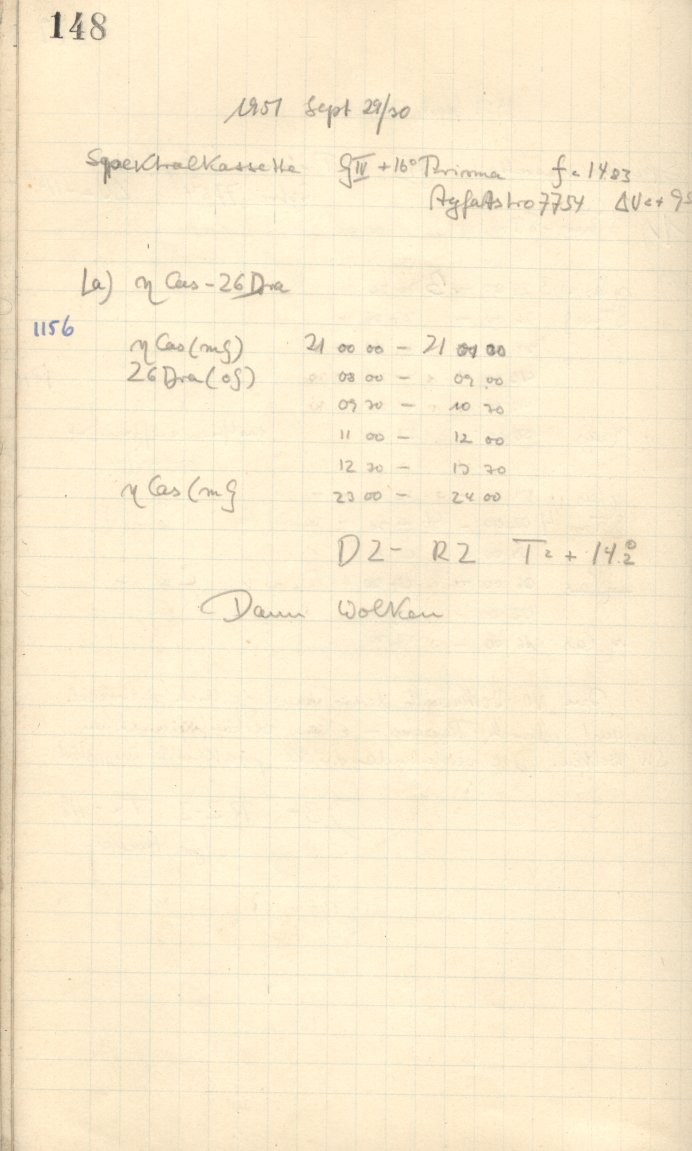 148
1951 Sept 29/30
Spektralkassette GIV + 16° Prisma f = 1483
Agfa Astro 7754 ΔV = + 95
1a) η Cas - 26 Dra
1156
η Cas (mg) 21 00 00 - 21
26 Dra (og) 08 00 - 09 00
09 30 - 10 30
11 00 - 12 00
12 30 - 13 30
η Cas (mg 23 00 - 24 00
D2- R2 T = + 14.°2
Dann Wolken